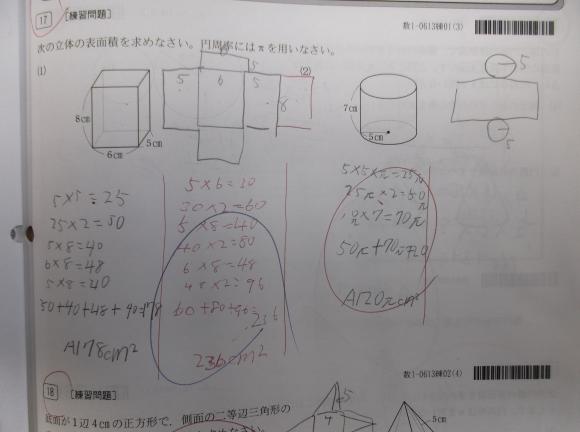 17 [練習問題]
数1-0613練01(3)
次の立体の表面積を求めなさい。円周率にはπを用いなさい。
(1)
8cm
6cm
5cm
5
6
5
5
8
(2)
7cm
5cm
5
5
5×5=25
25×2=50
5×8=40
6×8=48
5×8=40
50+40+48+40=178
A178cm²
5×6=30
30×2=60
5×8=40
40×2=80
6×8=48
48×2=96
60+80+96=
236
236cm²
5×5×π=25π
25π×2=50π
×7=70π
50π+70π=120
A120πcm²
数1-0613練02(4)
18 [練習問題]
底面が1辺4cmの正方形で，側面の二等辺三角形の
5
4
5cm